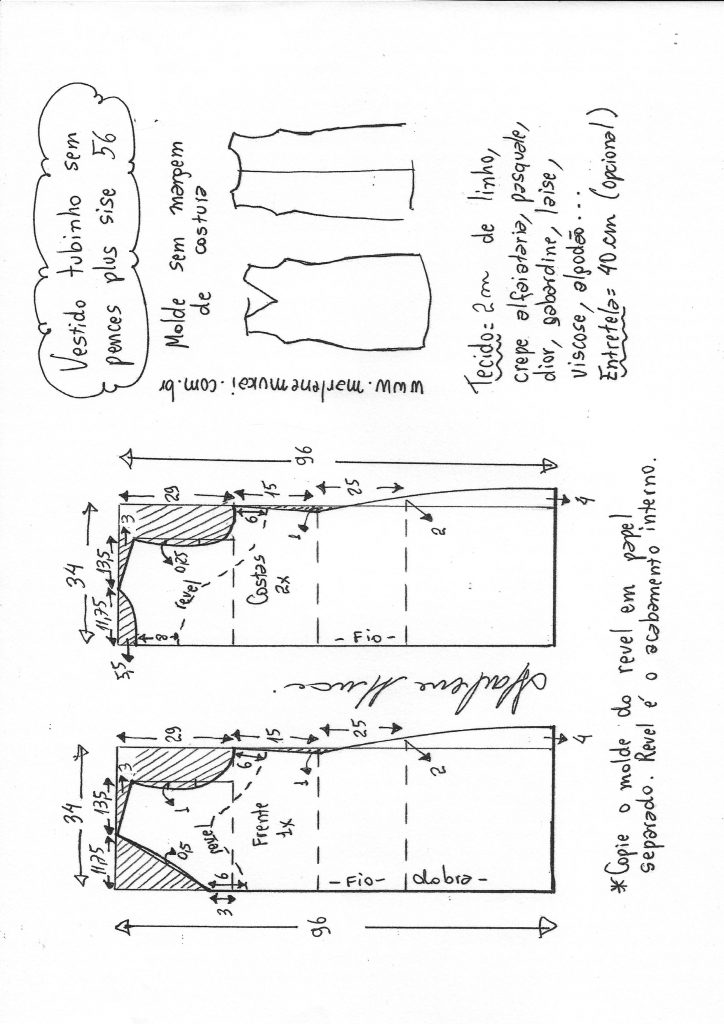 Vestido tubinho sem
pences plus sise 56
Molde sem margem
de costura
www.marlenemukai.com.br
Tecido= 2m de linho,
crepe alfaiataria, pasquale,
dior, gabardine, laise,
viscose, algodão...
Entretela= 40cm (opcional)
34
11,75
13,5
3
29
15
25
96
5,5
8
0,25
6
1
2
4
revel
Costas
2x
- Fio -
Marlene Mukai
34
11,75
13,5
3
29
15
25
96
1
0,5
6
6
3
1
2
4
revel
Frente
1x
- Fio -
dobra -
*Copie o molde do revel em papel
separado. Revel é o acabamento interno.